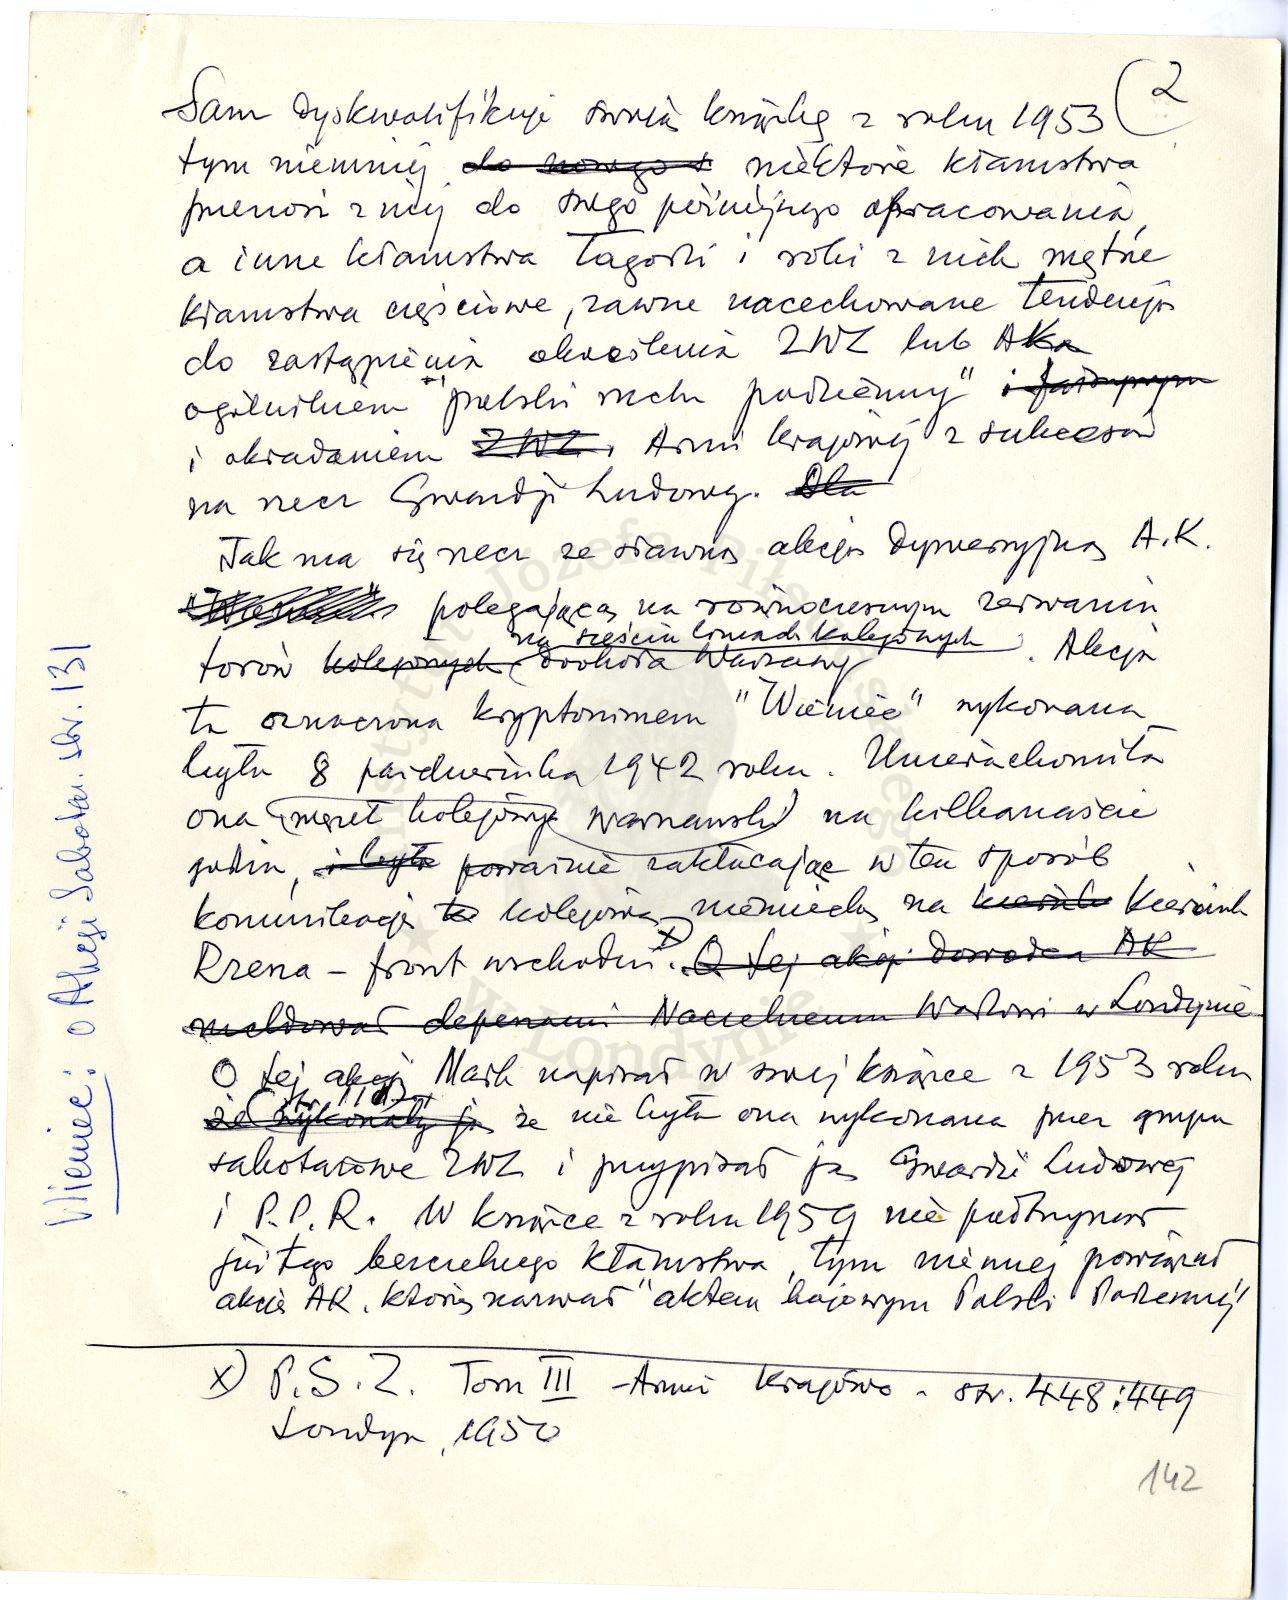 2
Sam dyskwalifikuje swoją książkę z roku 1953
tym niemniej do nowego niektóre kłamstwa
przenosi z niej do swego późniejszego opracowania,
a inne kłamstwa łagodzi i robi z nich mętne
kłamstwa częściowe, zawsze nacechowane tendencją
do zastąpienia określenia ZWZ lub AK
ogólnikiem "polski ruch podziemny" i
i okradaniem ZWZ. Armii Krajowej z sukcesów
na rzecz Gwardji Ludowej. Dla
Tak ma się rzecz ze sławną akcją dywersyjną A.K.
polegającą na równoczesnym zerwaniu
na sześciu liniach kolejowych
torów kolejowych dookoła Warszawy. Akcja
ta oznaczona kryptonimem "Wieniec" wykonana
była 8 października 1942 roku. Unieruchomiła
ona węzeł kolejowy warszawski na kilkanaście
godzin, i była poważnie zakłócając w ten sposób
komunikację kolejową niemiecką na kierunku kierunk
Rzesza – front wschodni. x) O tej akcji dowódca AK
meldował depeszami Naczelnemu Wodzowi w Londynie
O tej akcji Mark napisał w swej książce z 1953 roku
że wykonały ją że nie była ona wykonana przez grupy
sabotażowe ZWZ i przypisał ją Gwardii Ludowej
i P.P.R. W książce z roku 1959 nie podtrzymał
już tego bezczelnego kłamstwa, tym niemniej
akcję AK, którą nazwał "aktem bojowym Polski Podziemnej"
x) P.S.Z. Tom III – Armia Krajowa - str. 448 i 449
Londyn, 1950
142
Wieniec: o Akcji Sabotaż. str. 131